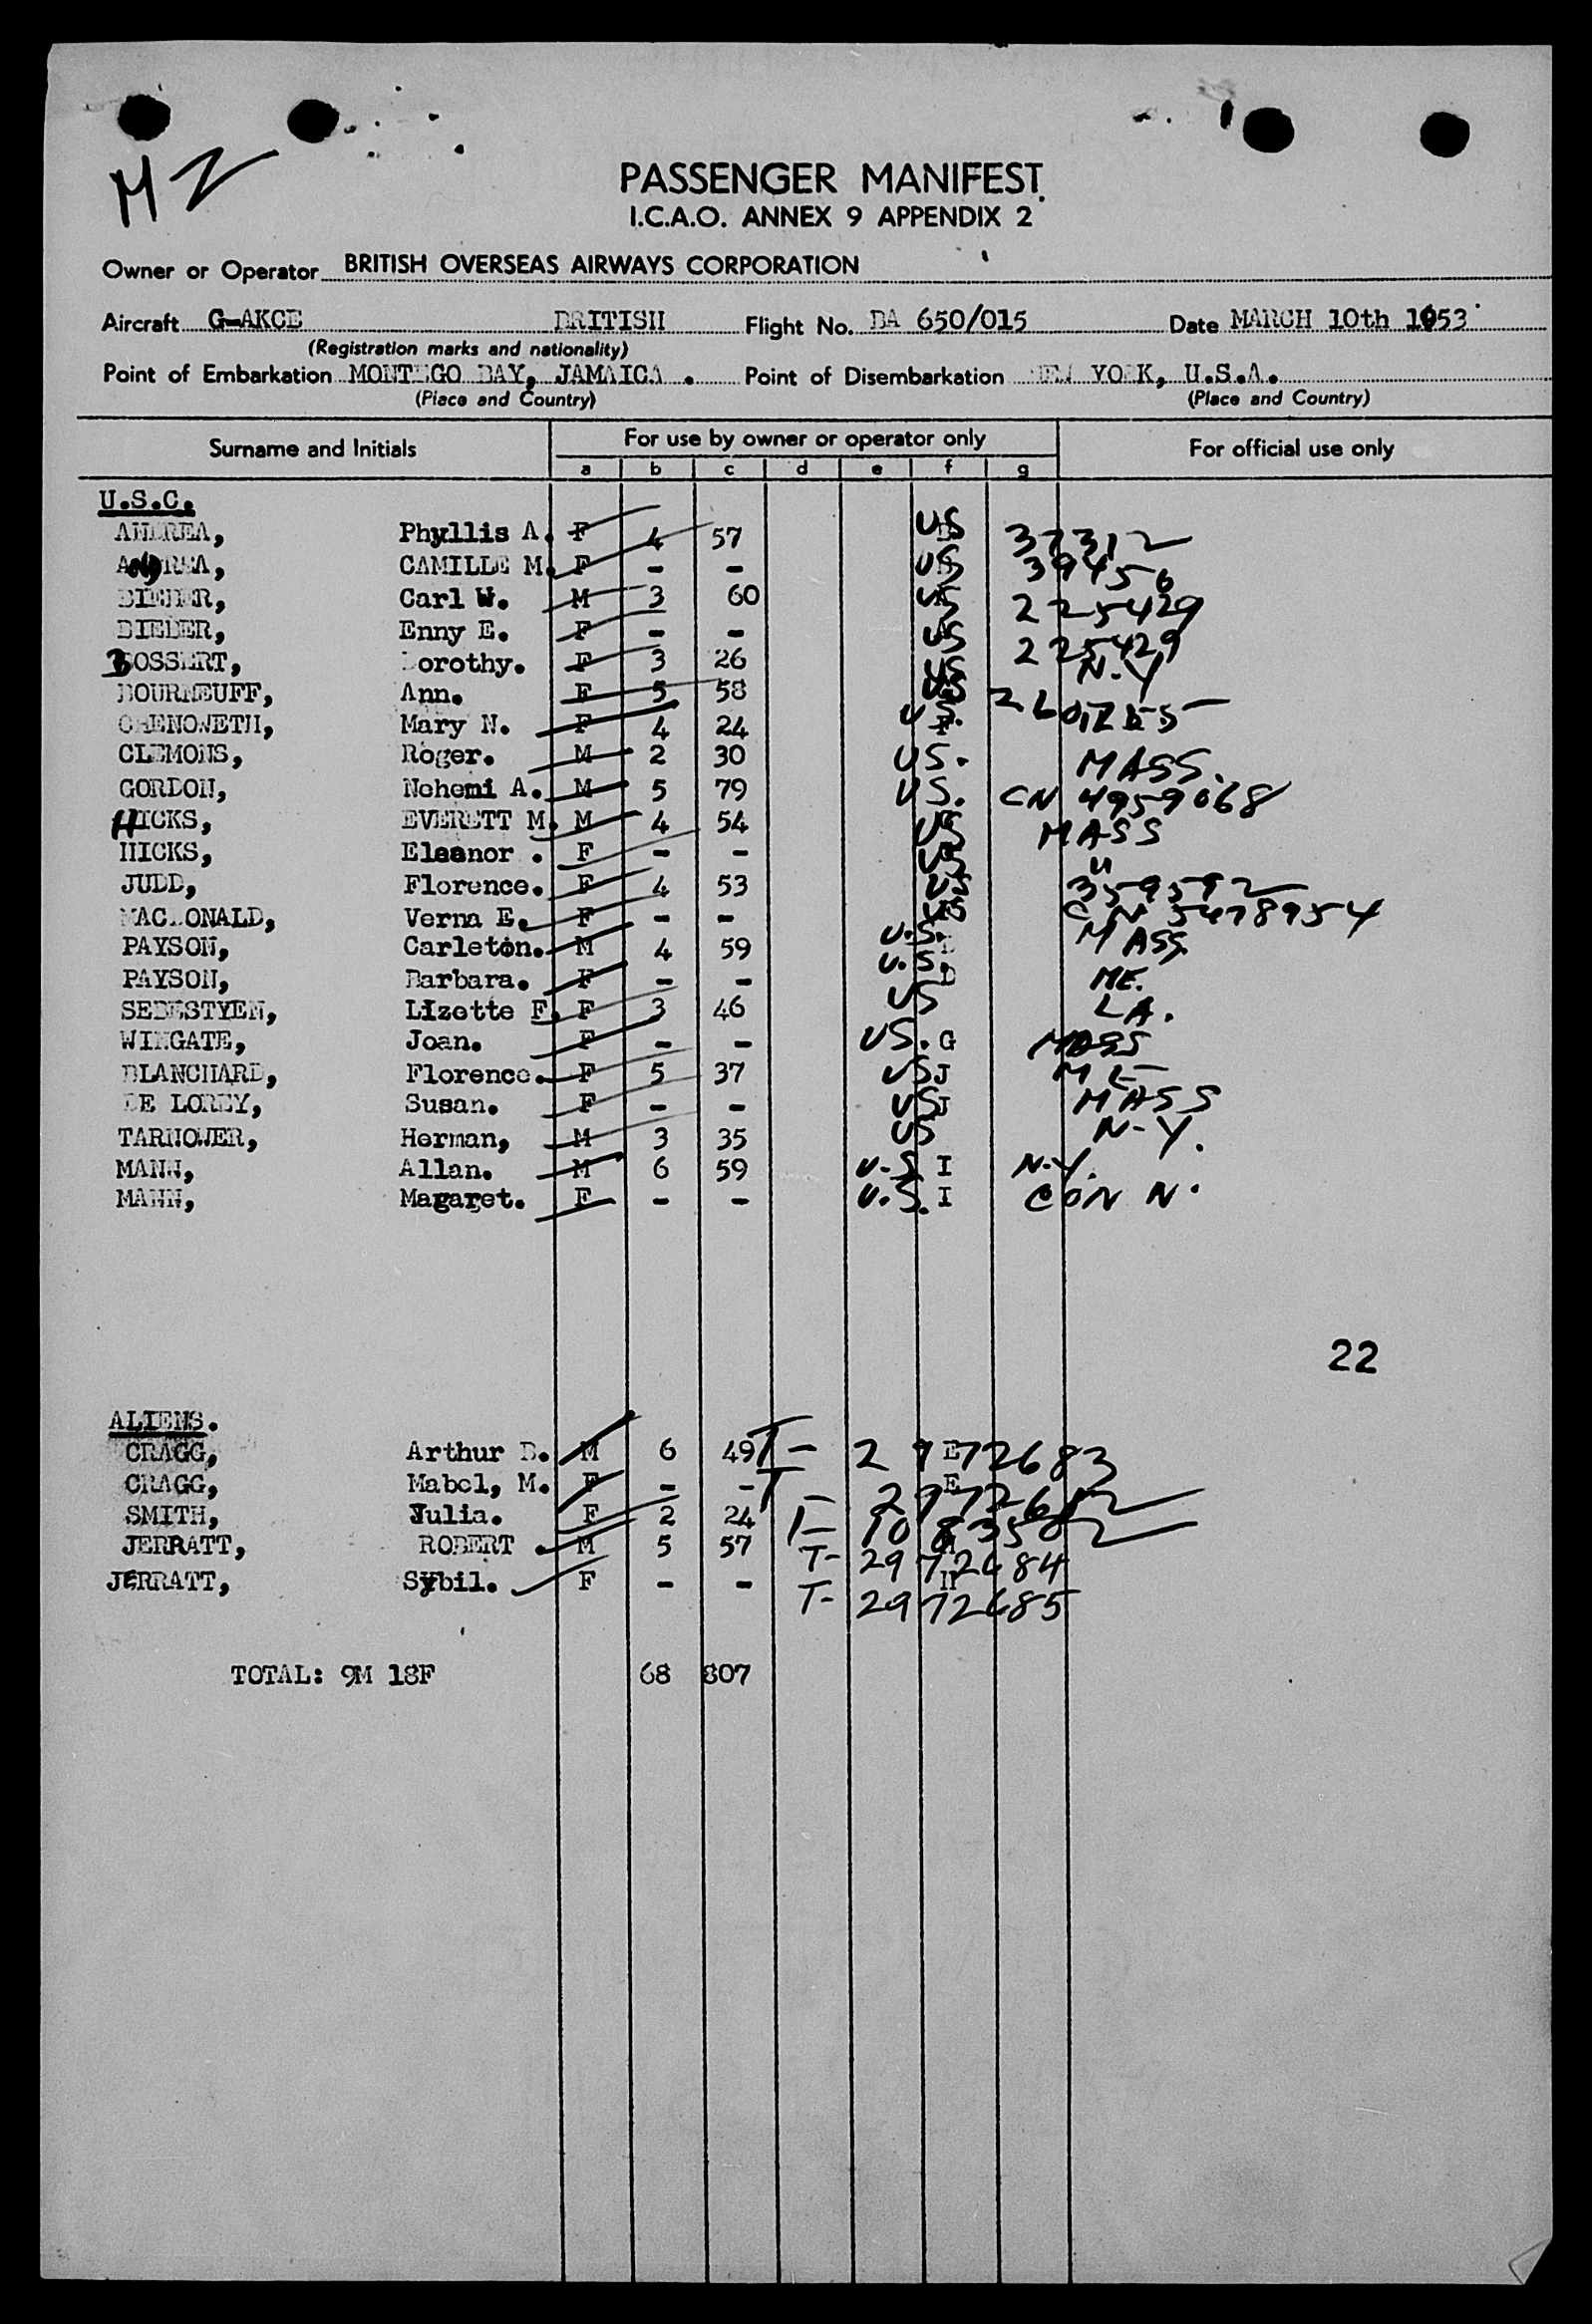 MZ
PASSENGER MANIFEST
I.C.A.O. ANNEX 9 APPENDIX 2
Owner or Operator BRITISH OVERSEAS AIRWAYS CORPORATION
Aircraft G-AKCE BRITISH Flight No. BA 650/015 Date MARCH 10th 1953
(Registration marks and nationality)
Point of Embarkation MONTEGO BAY, JAMAICA . Point of Disembarkation NEW YORK, U.S.A.
(Place and Country) (Place and Country)
Surname and Initials For use by owner or operator only For official use only
a b c d e f g
U.S.C.
ANDREA, Phyllis A. F 4 57 US 37312
ANDREA, CAMILLE M. F - - US 39456
BIEBER, Carl W. M 3 60 US 225429
BIEBER, Enny E. F - - US 225429
BOSSERT, Dorothy. F 3 26 US N.Y
BOURNEUFF, Ann. F 5 58 US
CHENOWETH, Mary N. F 4 24 U.S.
CLEMONS, Roger. M 2 30 US. MASS.
GORDON, Nohemi A. M 5 79 US. CN 4959068
HICKS, EVERETT M. M 4 54 US MASS
HICKS, Eleanor . F - - US "
JUDD, Florence. F 4 53 US 359592
MACDONALD, Verna E. F - - US CN 5478954
PAYSON, Carleton. M 4 59 U.S. MASS.
PAYSON, Barbara. F - - U.S. D ME.
SEBESTYEN, LIzette F. F 3 46 US LA.
WINGATE, Joan. F - - US. G MASS
BLANCHARD, Florence. F 5 37 US J ME
DE LOREY, Susan. F - - US J MASS
TARNOWER, Herman, M 3 35 US N-Y.
MANN, Allan. M 6 59 U.S I N.Y.
MANN, Magaret. F - - U.S. I CONN.
22
ALIENS.
CRAGG, Arthur B. M 6 49 T- E 2972683
CRAGG, Mabel, M. F - - T- E
SMITH, Julia. F 2 24 T-
JERRATT, ROBERT . M 5 57 T- 2972684
JERRATT, Sybil. F - - H T- 2972685
TOTAL: 9M 18F 68 807